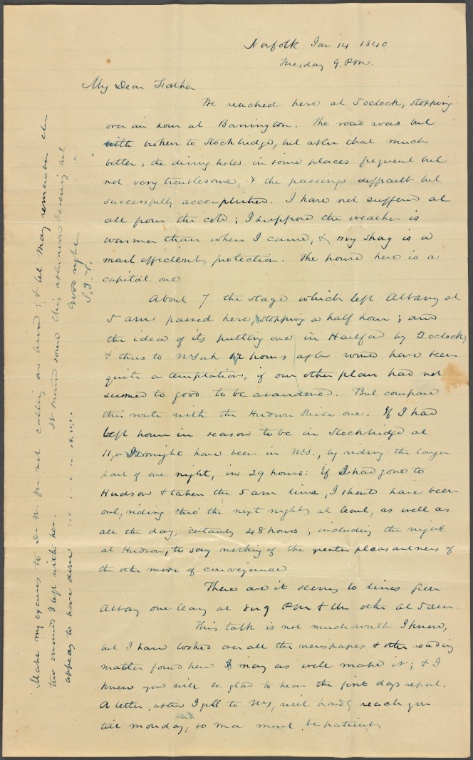 Norfolk Jan 14 1840
Tuesday 9. P.M.
My Dear Father
We reached here at 5 oclock, stopping
over an hour at Barrington. The road was but
with broken to Stockbridge, but after that much
better, the diving holes in some places frequent but
not very troublesome, & the passings difficult but
successfully accomplished. I have not suffered at
all from the cold; I suppose the weather is
warmer than when I came, & my shag is a
most efficient protection. The house here is a
capital one
About 7 the stage which left Albany at
5 am passed here, stopping a half hour; and
the idea of its putting one in Hartford by 2 oclock,
& thus to N York hours after would have been
quite a temptation, if our other plan had not
seemed to good to be abandoned. But compare
this route with the Hudson River one. If I had
left home in season to be in Stockbridge at
I might have been in N.Y., by riding the larger
part of one night, in 29 hours: If I had gone to
Hudson & taken the 5 am line, I should have been
out, riding thro' the next night, at least, as well as
all the day, certainly 48 hours, including the night
at Hudson, to say nothing of the greater pleasantness of
the other mode of conveyance
There are it seems to lines from
Albany one leaving at 8 or 9 P.M & the other at 5 am.
This talk is not much worth I know,
but I have looked over all the newspapers & other reading
matter found here & may as well make it; & I
know you will be glad to hear the first days report.
A letter, after I get to NY, will hardly reach you
till monday, so Ma must be patient
Make my excuses to Dr. for not calling on him; & let May remember the
two errands I left with her. It snowed some this afternoon & evening but
appears to have done now.
Good night